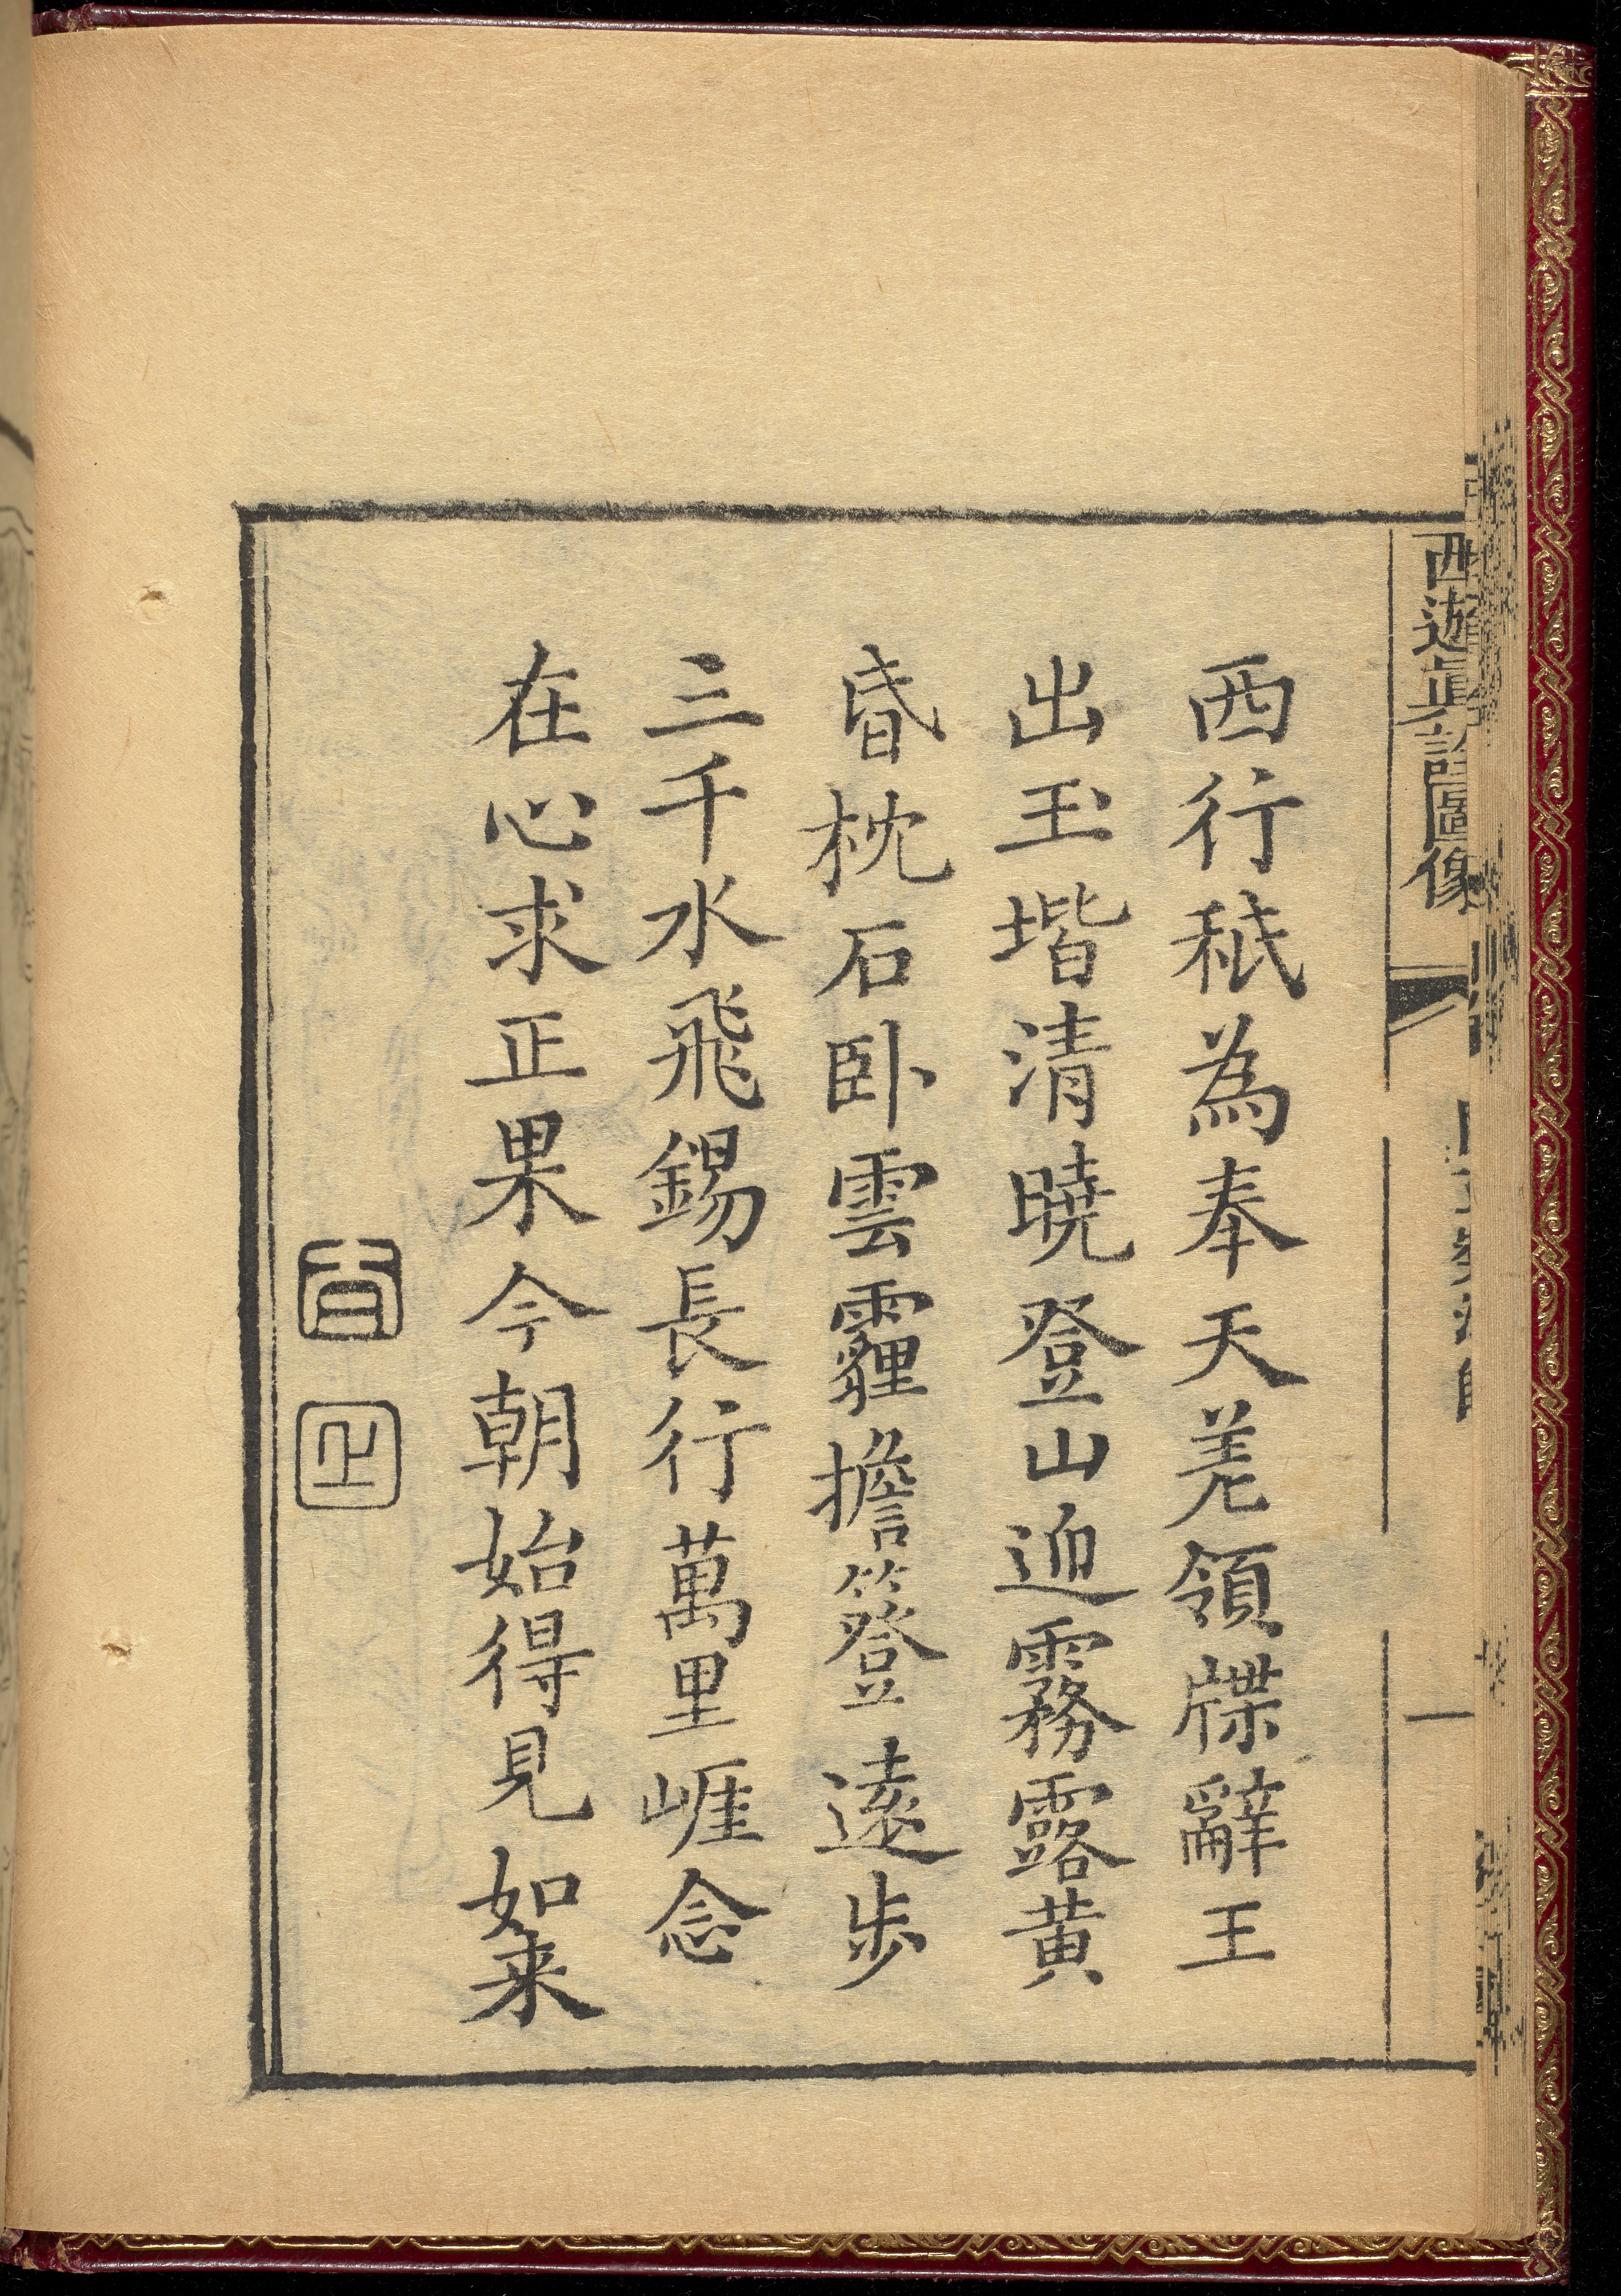 西遊真詮圖像
一
西行秪為奉天差領牒辭王
出玉堦清曉登山迎霧露黄
昏枕石卧雲霾擔簦遠步
三千水飛錫長行萬里崕念
在心求正果今朝始得見如来